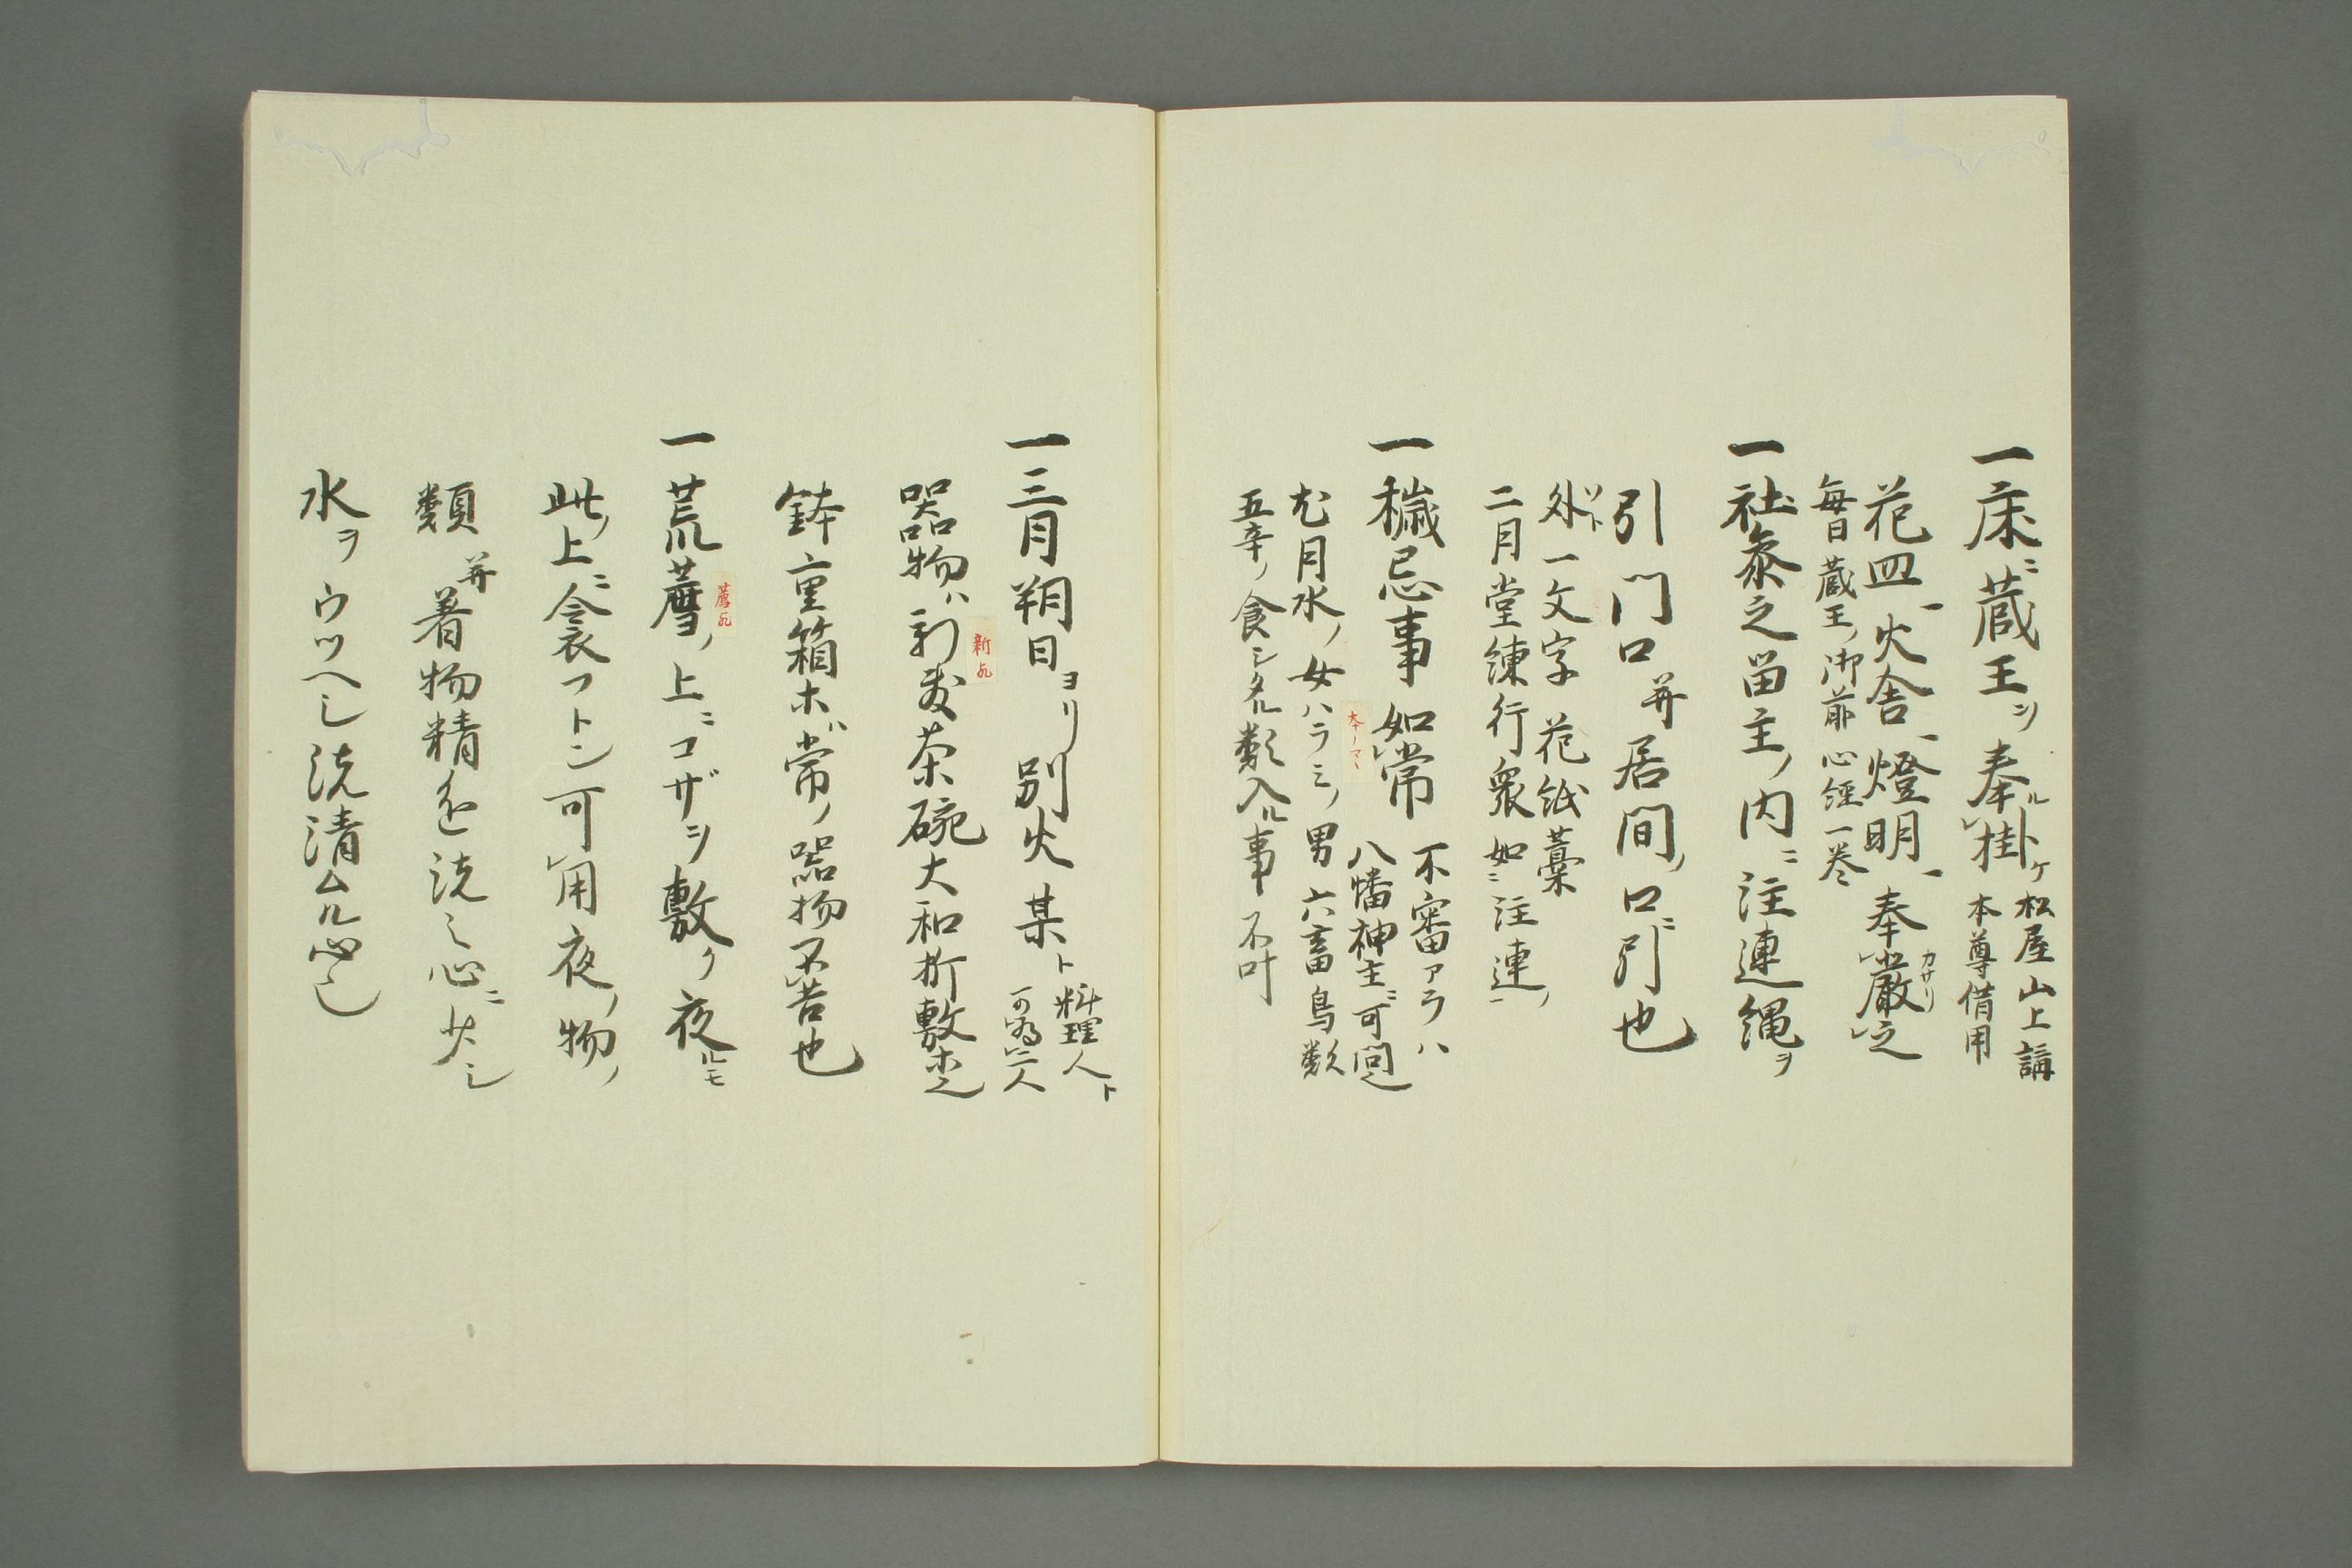 一床ニ蔵王ヲ奉ルレ掛ケ 松屋山上講
本尊借用
花皿一火舎一燈明一奉レ厳カサリレ之
毎日蔵王ノ御前心経一巻
一社参之留主ノ内ニ注連縄ヲ
引門口并居間ノ口ニ引也
外ソト一文字 花紙藁
二月堂練行衆如ニ注連ノ一
一穢忌事如レ常 不審アラハ
八幡神主ニ可問之
尤月水ノ女ハラミノ男六畜鳥類
本ノマヽ
五辛ノ食シタル類入ル事不叶
一三月朔日ヨリ別火某ト料理人ト
可為二人
器物ハ新茶碗大和折敷ホ之
新カ
鉢重箱ホハ常ノ器物不レ苦也
一荒薦ノ上ニコザヲ敷ク夜ルモ
薦カ
此ノ上ニ衾フトン可レ用夜ノ物ノ
類并着物精進洗之心ニ火シ
水ヲウツヘシ洗清ムル心也